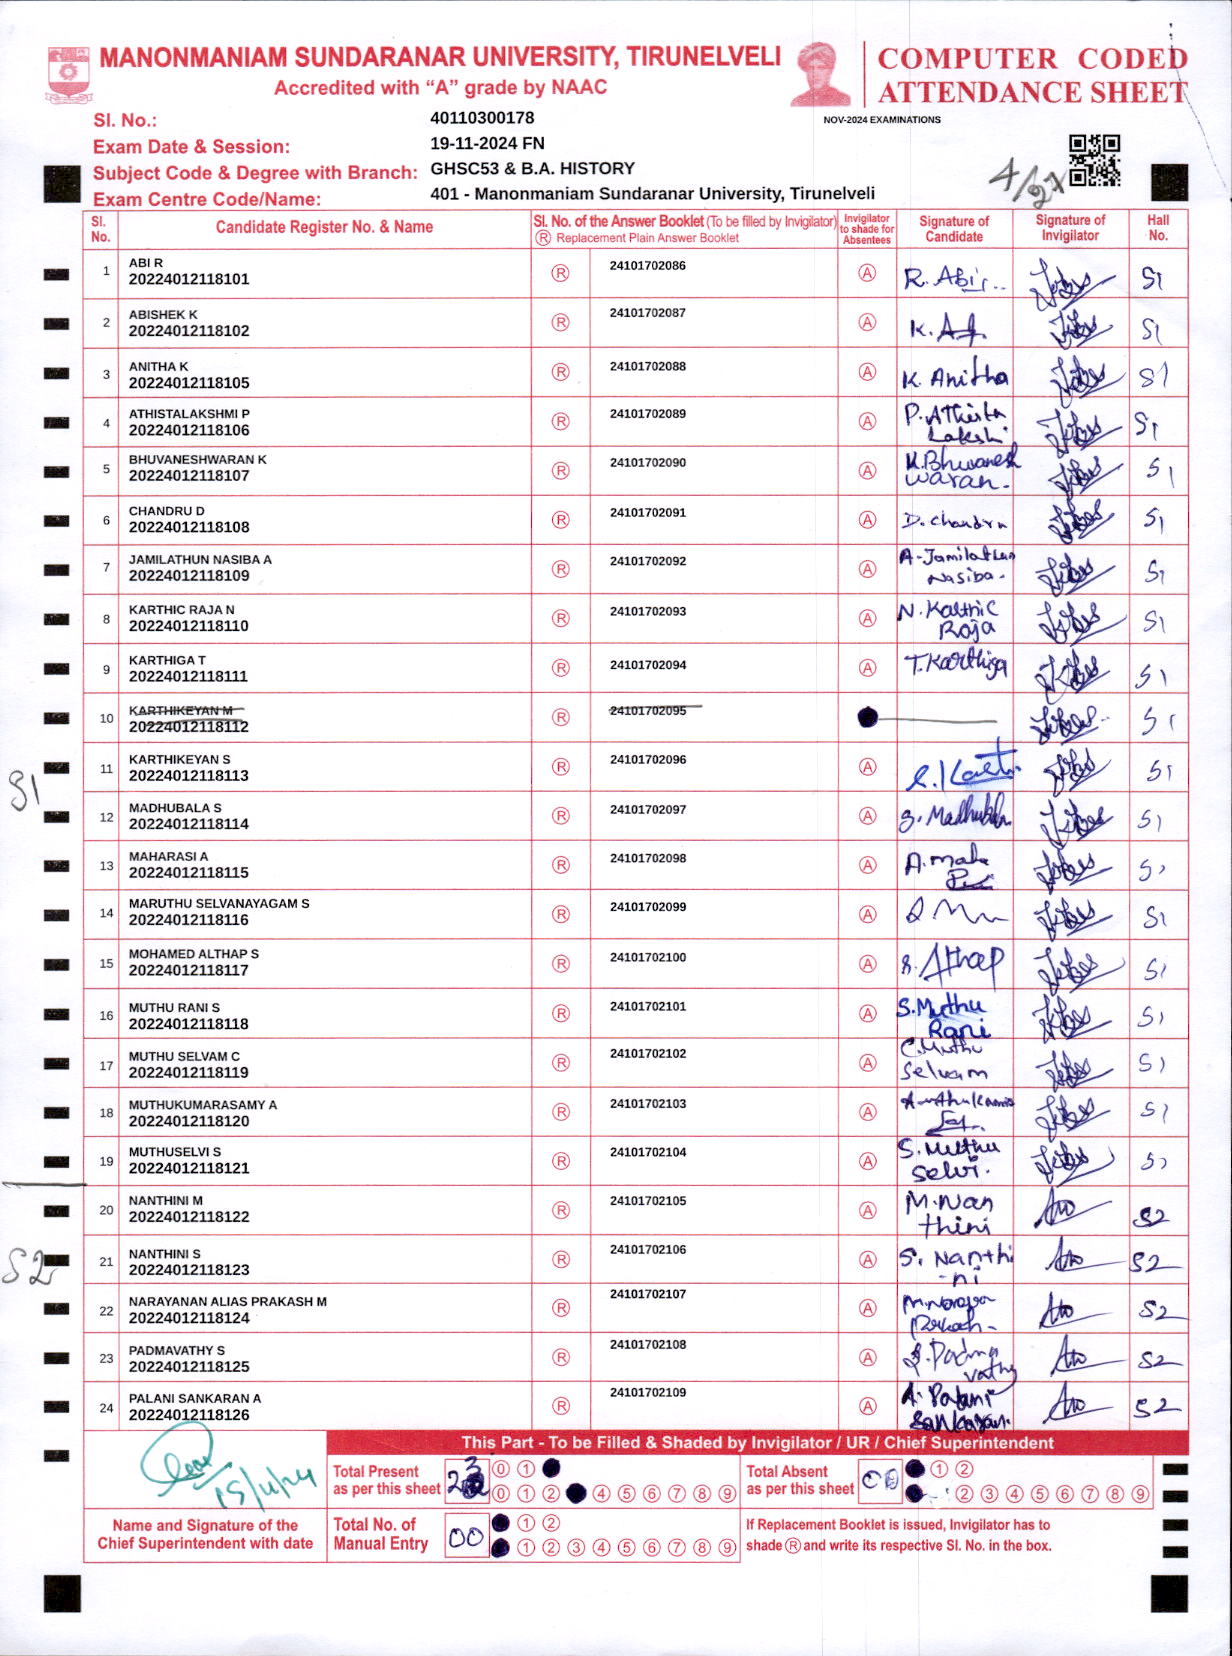 MANONMANIAM SUNDARANAR UNIVERSITY, TIRUNELVELI
Accredited with “A” grade by NAAC
COMPUTER CODED
ATTENDANCE SHEET
NOV-2024 EXAMINATIONS
Sl. No.: 40110300178
Exam Date & Session: 19-11-2024 FN
Subject Code & Degree with Branch: GHSC53 & B.A. HISTORY
Exam Centre Code/Name: 401 - Manonmaniam Sundaranar University, Tirunelveli
4/27
Sl. No. Candidate Register No. & Name Sl. No. of the Answer Booklet (To be filled by Invigilator) Ⓡ Replacement Plain Answer Booklet Invigilator to shade for Absentees Signature of Candidate Signature of Invigilator Hall No.
1 ABI R 20224012118101 Ⓡ 24101702086 Ⓐ R. Abi S1
2 ABISHEK K 20224012118102 Ⓡ 24101702087 Ⓐ S1
3 ANITHA K 20224012118105 Ⓡ 24101702088 Ⓐ K. Anitha S1
4 ATHISTALAKSHMI P 20224012118106 Ⓡ 24101702089 Ⓐ S1
5 BHUVANESHWARAN K 20224012118107 Ⓡ 24101702090 Ⓐ K.Bhuvanesh waran. S1
6 CHANDRU D 20224012118108 Ⓡ 24101702091 Ⓐ D. Chandru S1
7 JAMILATHUN NASIBA A 20224012118109 Ⓡ 24101702092 Ⓐ A-Jamilathun Nasiba. S1
8 KARTHIC RAJA N 20224012118110 Ⓡ 24101702093 Ⓐ N. Karthic Raja S1
9 KARTHIGA T 20224012118111 Ⓡ 24101702094 Ⓐ T.Karthiga S1
10 KARTHIKEYAN M 20224012118112 Ⓡ 24101702095 S1
11 KARTHIKEYAN S 20224012118113 Ⓡ 24101702096 Ⓐ S1
S1
12 MADHUBALA S 20224012118114 Ⓡ 24101702097 Ⓐ S. S1
13 MAHARASI A 20224012118115 Ⓡ 24101702098 Ⓐ A. maha S1
14 MARUTHU SELVANAYAGAM S 20224012118116 Ⓡ 24101702099 Ⓐ S1
15 MOHAMED ALTHAP S 20224012118117 Ⓡ 24101702100 Ⓐ S. Althap S1
16 MUTHU RANI S 20224012118118 Ⓡ 24101702101 Ⓐ S.Muthu Rani S1
17 MUTHU SELVAM C 20224012118119 Ⓡ 24101702102 Ⓐ C.Muthu Selvam S1
18 MUTHUKUMARASAMY A 20224012118120 Ⓡ 24101702103 Ⓐ S1
19 MUTHUSELVI S 20224012118121 Ⓡ 24101702104 Ⓐ S. Muthu Selvi. S1
20 NANTHINI M 20224012118122 Ⓡ 24101702105 Ⓐ M.Nan thini S2
21 NANTHINI S 20224012118123 Ⓡ 24101702106 Ⓐ S. Nanthi -ni S2
S2
22 NARAYANAN ALIAS PRAKASH M 20224012118124 Ⓡ 24101702107 Ⓐ S2
23 PADMAVATHY S 20224012118125 Ⓡ 24101702108 Ⓐ S. Padma vathy S2
24 PALANI SANKARAN A 20224012118126 Ⓡ 24101702109 Ⓐ A. Palani Sankaran. S2
This Part - To be Filled & Shaded by Invigilator / UR / Chief Superintendent
Total Present as per this sheet 23
0 1
0 1 2 4 5 6 7 8 9
Total Absent as per this sheet
1 2
2 3 4 5 6 7 8 9
Name and Signature of the Chief Superintendent with date
Total No. of Manual Entry 00
1 2
1 2 3 4 5 6 7 8 9
If Replacement Booklet is issued, Invigilator has to
shade Ⓡ and write its respective Sl. No. in the box.